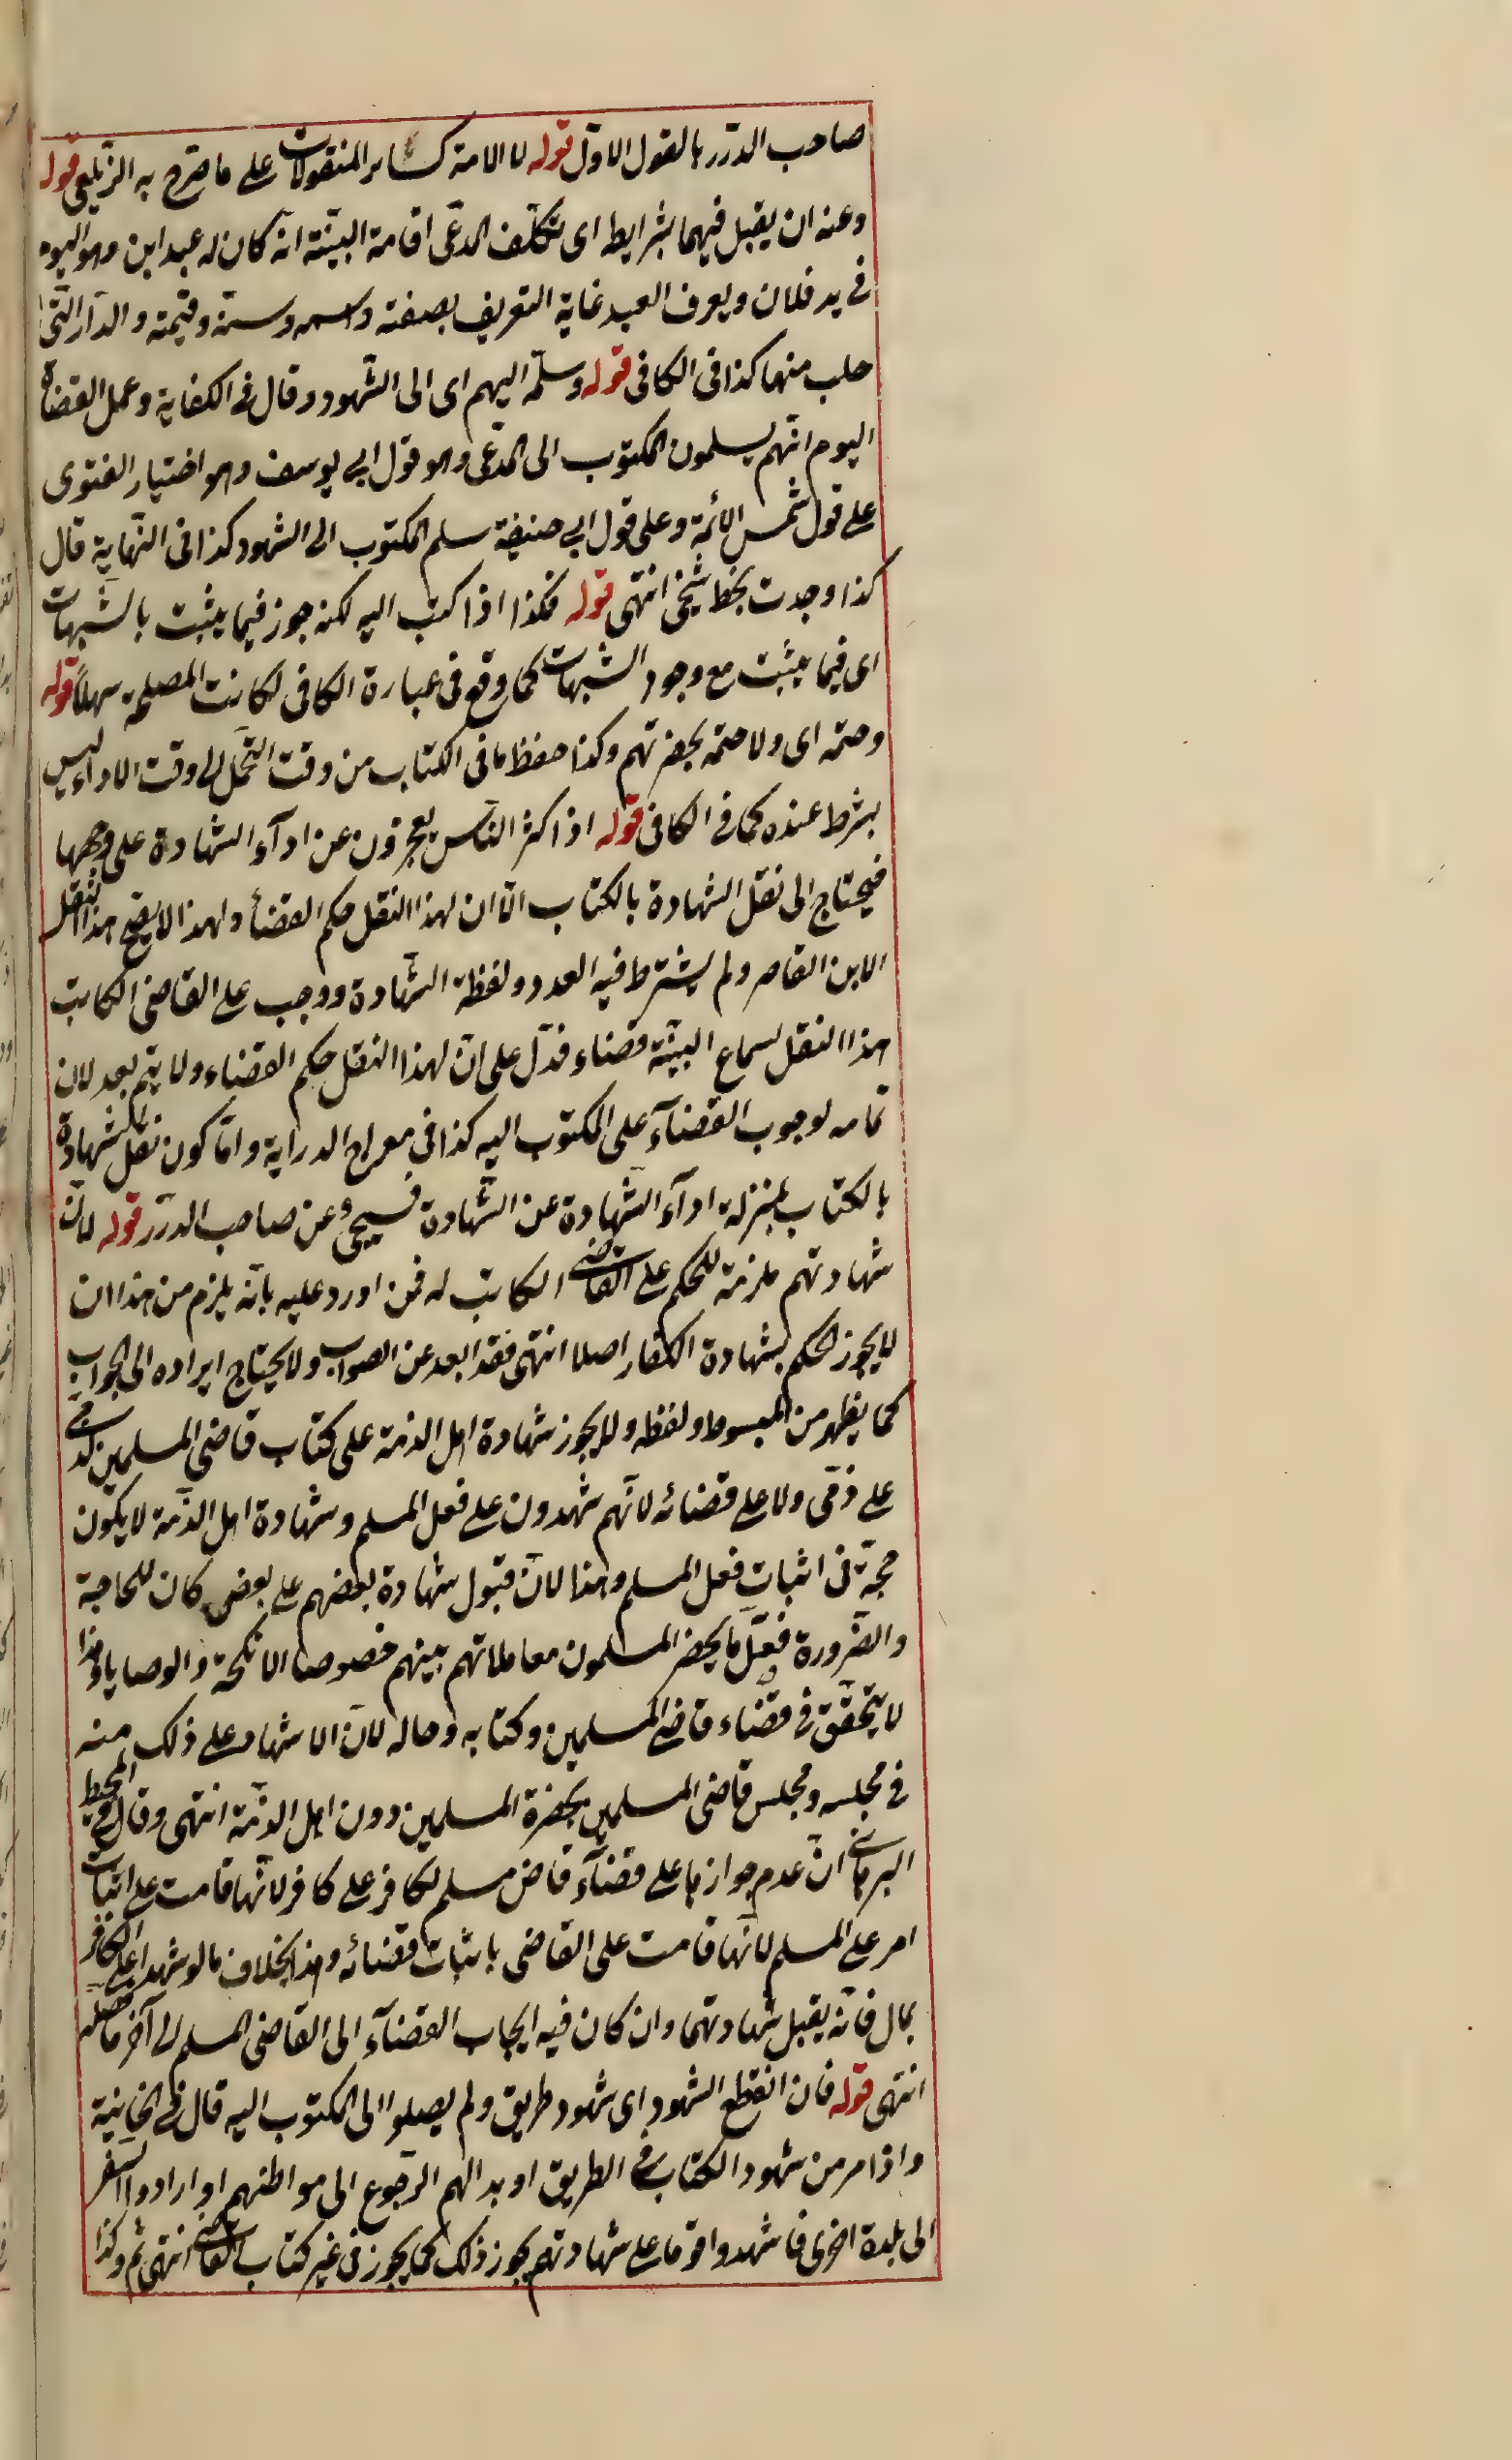 صاحب الدرر بالقول الاول قوله لا الامة كسائر المنقولات على ما صرح به الزيلعى قوله
وعنه ان يقبل فيهما بشرايطه اى تكلف المدعى اقامة البينة انه كان له عبد ابق وهو اليوم
فى يد فلان ويعرف العبد غاية التعريف بصفته واسمه وسنه وقيمته والدار التى
جلب منها كذا فى الكافى قوله وسلمه اليهم اى الى الشهود وقال فى الكفاية وعمل القضاة
اليوم انهم يسلمون المكتوب الى المدعى وهو قول ابى يوسف وهو اختيار الفتوى
على قول شمس الائمة وعلى قول ابى حنيفة سلم المكتوب الى الشهود كذا فى النهاية قال
كذا وجدت بخط شيخى انتهى قوله فكذا اذا كتب اليه لكنه جوز فيما يثبت بالشبهات
اى فيما يثبت مع وجود الشبهات كما وقع فى عبارة الكافى لكانت المصلحة سهلا قوله
وختمه اى ولا ختمه بحضرتهم وكذا حفظ ما فى الكتاب من وقت التحمل الى وقت الاداء ليس
بشرط عنده كما فى الكافى قوله اذ اكثر الناس يعجزون عن ادآء الشهادة على وجهها
فيحتاج الى نقل الشهادة بالكتاب الا ان لهذا النقل حكم القضأ ولهذا لا يصح هذا النقل
الا من القاصر ولم يشترط فيه العدد ولفظة الشهادة ووجب على القاضى الكاتب
هذا النقل لسماع البينة قضاء فدل على ان لهذا النقل حكم القضاء ولا يتم بعد لان
تمامه لوجوب القضآء على المكتوب اليه كذا فى معراج الدراية واما كون نقل الشهادة
بالكتاب بمنزلة ادآء الشهادة عن الشهادة فسيجئ عن صاحب الدرر قوله لان
شهادتهم ملزمة للحكم على القاضى الكاتب له فمن اورد عليه بانه يلزم من هذا ان
لا يجوز الحكم بشهادة الكفار اصلا انتهى فقد ابعد عن الصواب ولا يحتاج ايراده الى الجواب
كما يظهر من المبسوط ولفظه ولا يجوز شهادة اهل الذمة على كتاب قاضى المسلمين لذمى
على ذمى ولا على قضائه لانهم شهدون على فعل المسلم وشهادة اهل الذمة لا يكون
حجة فى اثبات فعل المسلم وهذا لان قبول شهادة بعضهم على بعض كان للحاجة
والضرورة فقل ما يحضر المسلمون معاملاتهم بينهم خصوصا الانكحة والوصايا وهذا
لا يتحقق فى قضاء قاضى المسلمين وكتابه وحاله لان الاشهاد على ذلك منه
فى مجلسه ومجلس قاضى المسلمين بحضرة المسلمين دون اهل الذمة انتهى وقال فى المحيط
البرهانى ان عدم جوازها على قضآء قاض مسلم لكافر على كافر لانها قامت على اثبات
امر على المسلم لانها قامت على القاضى باثبات قضائه وهذا بخلاف ما لو شهدا على الكافر
بمال فانه يقبل شهادتهما وان كان فيه ايجاب القضآء الى القاضى المسلم الى آخر ما فصله
انتهى قوله فان انقطع الشهود اى شهود طريق ولم يصلوا الى المكتوب اليه قال فى الخانية
واذا مرض شهود الكتاب فى الطريق او بدا لهم الرجوع الى مواطنهم او ارادوا السفر
الى بلدة اخرى فاشهدوا قوما على شهادتهم يجوز ذلك كما يجوز فى غير كتاب القاضى انتهى ثم وكذا